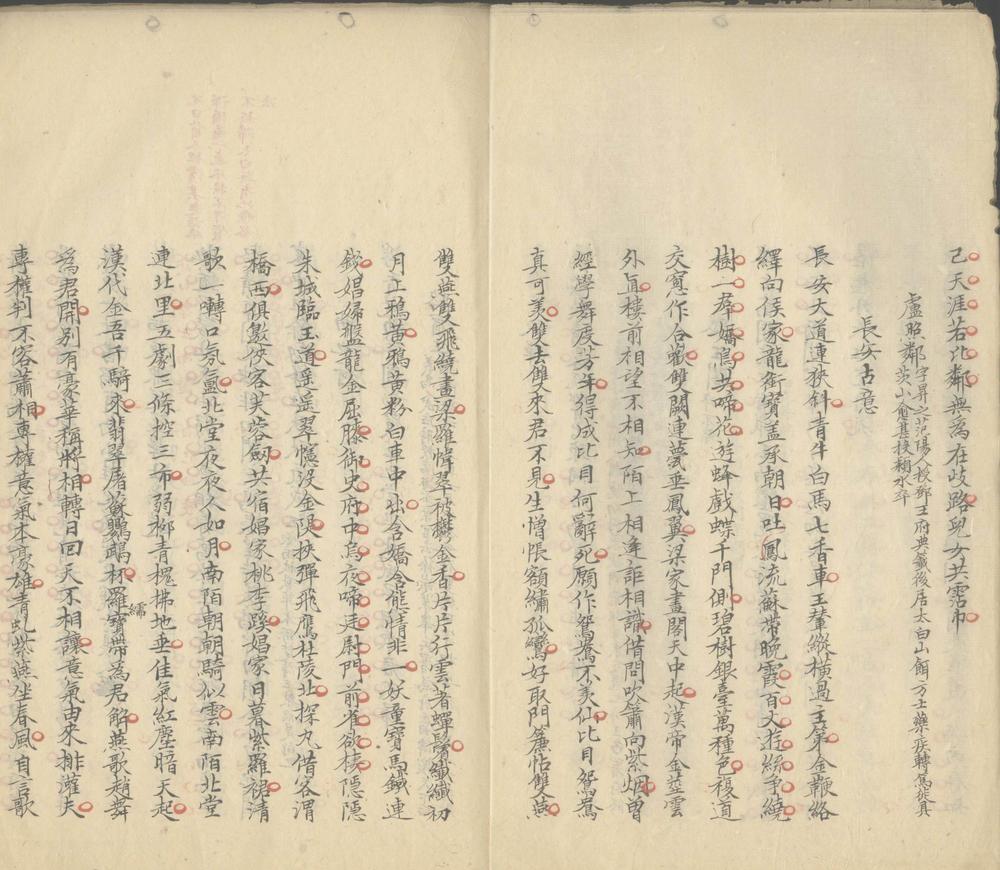 己天涯若比鄰無為在歧路兒女共霑巾
盧照鄰字昇之范陽人授鄧王府典籤後居太白山餌方士藥疾轉篤徙具
茨山愈甚投潁水卒
長安古意
長安大道連狹斜青牛白馬七香車玉輦縱橫過主第金鞭絡
繹向侯家龍銜寶蓋承朝日吐鳳流蘇帶晚霞百丈遊絲爭繞
樹一群嬌鳥共啼花遊蜂戲蝶千門側碧樹銀臺萬種色複道
交窻作合歡雙闕連甍垂鳳翼梁家畫閣天中起漢帝金莖雲
外直樓前相望不相知陌上相逢詎相識借問吹簫向紫烟曾
經學舞度芳年得成比目何辭死願作鴛鴦不羨仙比目鴛鴦
真可羨雙去雙來君不見生憎帳額繡孤鸞好取門簾帖雙燕
雙燕雙飛繞畫梁羅幃翠被鬱金香片片行雲著蟬鬢纖纖初
月上鴉黃鴉黃粉白車中出含嬌含態情非一妖童寶馬鐵連
錢娼婦盤龍金屈膝御史府中烏夜啼廷尉門前雀欲棲隱隱
朱城臨玉道遥遥翠幰沒金隄挾彈飛鷹杜陵北探丸借客渭
橋西俱邀俠客芙蓉劒共宿娼家桃李蹊娼家日暮紫羅裙清
歌一囀口氛氳北堂夜夜人如月南陌朝朝騎似雲南陌北堂
連北里五劇三條控三市弱柳青槐拂地垂佳氣紅塵暗天起
漢代金吾千騎來翡翠屠蘇鸚鵡杯羅襦寶帶為君解燕歌趙舞
為君開別有豪華稱將相轉日回天不相讓意氣由來排灌夫
專權判不容蕭相專權意氣本豪雄青虬紫燕坐春風自言歌